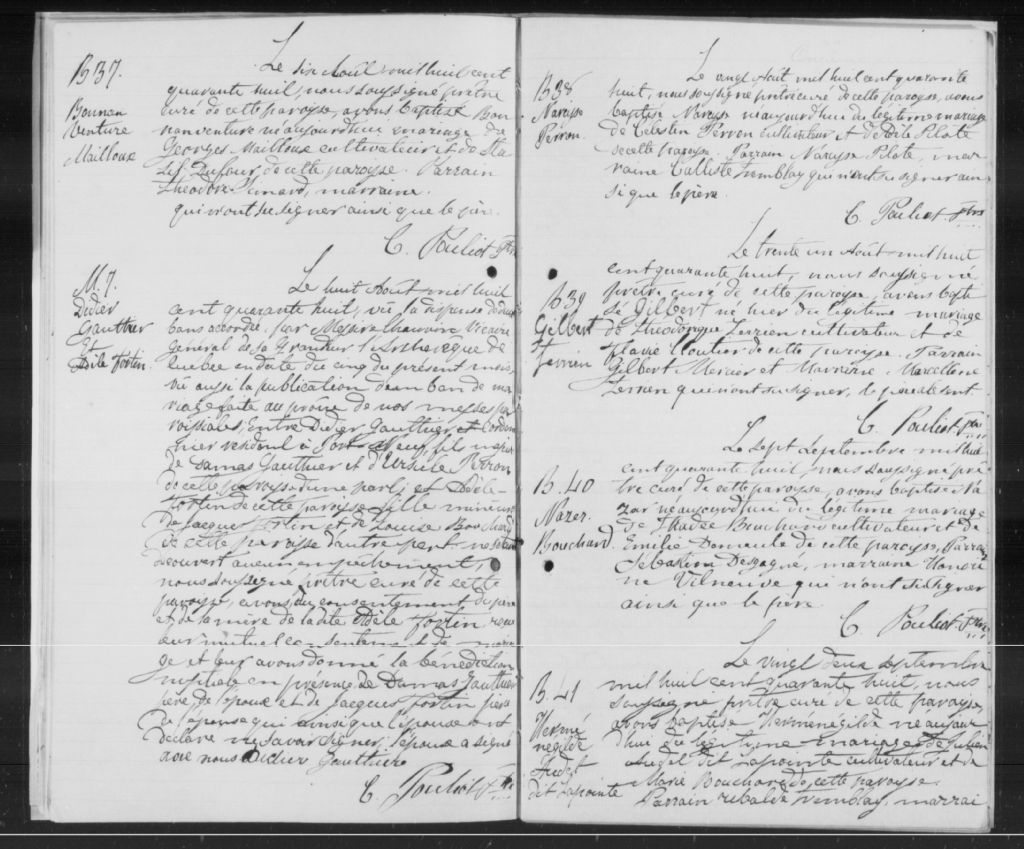 B 37.
Bonnan
venture
Mailloux
Le six Août mil huit cent
quarante huit, nous soussigné prêtre
curé de cette paroysse, avons baptisé Bon
nanventure né aujourdhui mariage de
Georges Mailloux cultivateur et de
Dufour de cette paroysse. Parrain
Théodore Simard, marraine.
qui n'ont su signer ainsi que le père.
C. Pouliot Ptre
M. 7.
Didier
Gauthier
et
Adèle Fortin
Le huit Août mil huit
cent quarante huit, vu la dispense de deux
bans accordée par Messire Vicaire
Général de sa Grandeur l'Archevêque de
Québec en date du cinq du présent mois,
vu aussi la publication d'un ban de ma
riage faite au prône de nos messes pa
roissiales, Entre Didier Gauthier et Cordon
nier résidant à Port Neuf, fils majeur
de Damas Gauthier et d'Ursule Perron
de cette paroysse d'une part; et Adèle
Fortin de cette paroysse fille mineure
de Jacques Fortin et de Louise Bouchard
de cette paroysse d'autre part, ne s'étant
découvert aucun empêchement,
nous soussigné prêtre curé de cette
paroysse, avons du consentement du père
et de la mère de la dite Adèle Fortin reçu
leur mutuel consentement de maria
ge et leur avons donné la bénédiction
nuptiale en présence de Damas Gauthier
père de l'époux et de Jacques Fortin père
de l'épouse qui ainsi que l'épouse ont
déclaré ne savoir signer, l'époux a signé
avec nous Didier Gauthier
C. Pouliot Ptre
B 38
Narcysse
Perron.
Le vingt Août mil huit cent quarante
huit, nous soussigné prêtre curé de cette paroysse, avons
baptisé Narcysse né aujourdhui du légitime mariage
de Célestin Perron cultivateur et de Pilote
de cette paroysse. Parrain Narcysse Pilote, mar
raine Calliste Tremblay qui n'ont su signer ain
si que le père.
C. Pouliot Ptre
B 39
Gilbert
Terrien
Le trente un Août mil huit
cent quarante huit, nous soussigné
prêtre curé de cette paroysse, avons bapti
sé Gilbert né hier du légitime mariage
de Terrien cultivateur et de
Flavie Cloutier de cette paroysse. Parrain
Gilbert Mercier et Marraine Marcelline
Terrien qui n'ont su signer, le père absent.
C. Pouliot Ptre
B. 40
Nazer.
Bouchard
Le sept Septembre mil huit
cent quarante huit, nous soussigné prê
tre curé de cette paroysse, avons baptisé Na
zar né aujourdhui du légitime mariage
de Thadée Bouchard cultivateur et de
Emilie de cette paroysse, Parrain
Sébastien Desgagné, marraine Honori
ne Vilneuve qui n'ont su signer
ainsi que le père.
C. Pouliot Ptre
B. 41
Hermé
negilde
Audet
dit Lapointe
Le vingt deux Septembre
mil huit cent quarante huit, nous
soussigné prêtre curé de cette paroysse,
avons baptisé Herménégilde né aujour
d'hui du légitime mariage de Julien
Audet dit Lapointe cultivateur et de
Marie Bouchard de cette paroysse
Parrain Tremblay, marrai